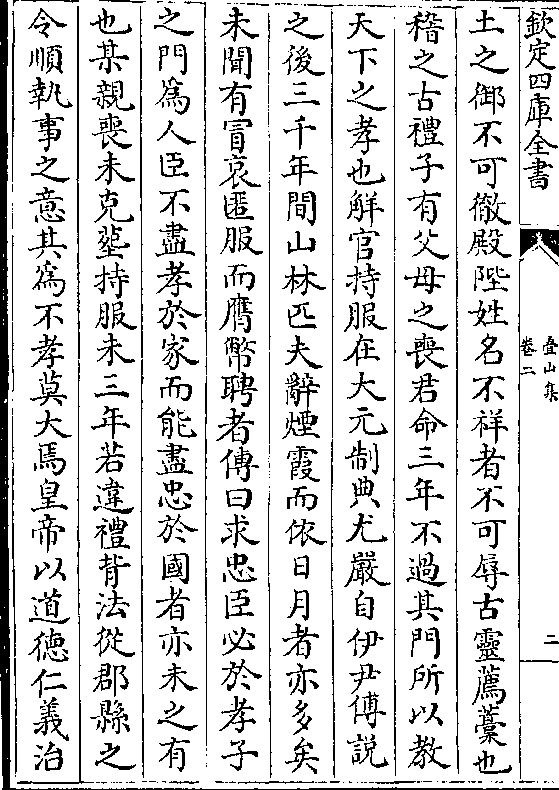 欽定四庫全書
疊山集
卷二
二
土之御不可徹殿陛姓名不祥者不可辱古靈薦藁也
稽之古禮子有父母之喪君命三年不過其門所以教
天下之孝也解官持服在大元制典尤嚴自伊尹傅説
之後三千年間山林匹夫辭煙霞而依日月者亦多矣
未聞有冐哀匿服而膺幣聘者傳曰求忠臣必於孝子
之門為人臣不盡孝於家而能盡忠於國者亦未之有
也某親喪未克塟持服未三年若違禮背法從郡縣之
令順執事之意其為不孝莫大焉皇帝以道徳仁義治